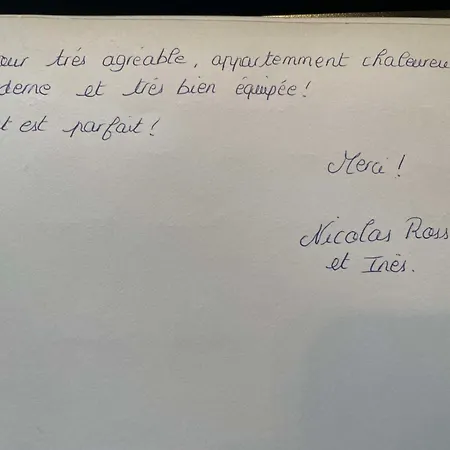 our trés agréable, appartemment chaleureu
derne et trés bien équipée!
t est parfait!
Merci!
Nicolas Ross
et Inès.